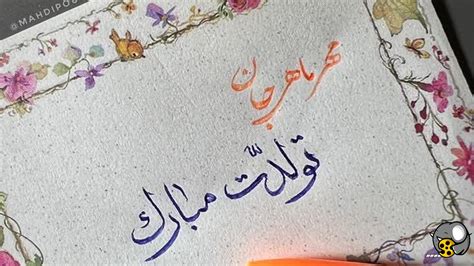 @MAHDIPOU
مهرماهر جان
تولدّت مبارک